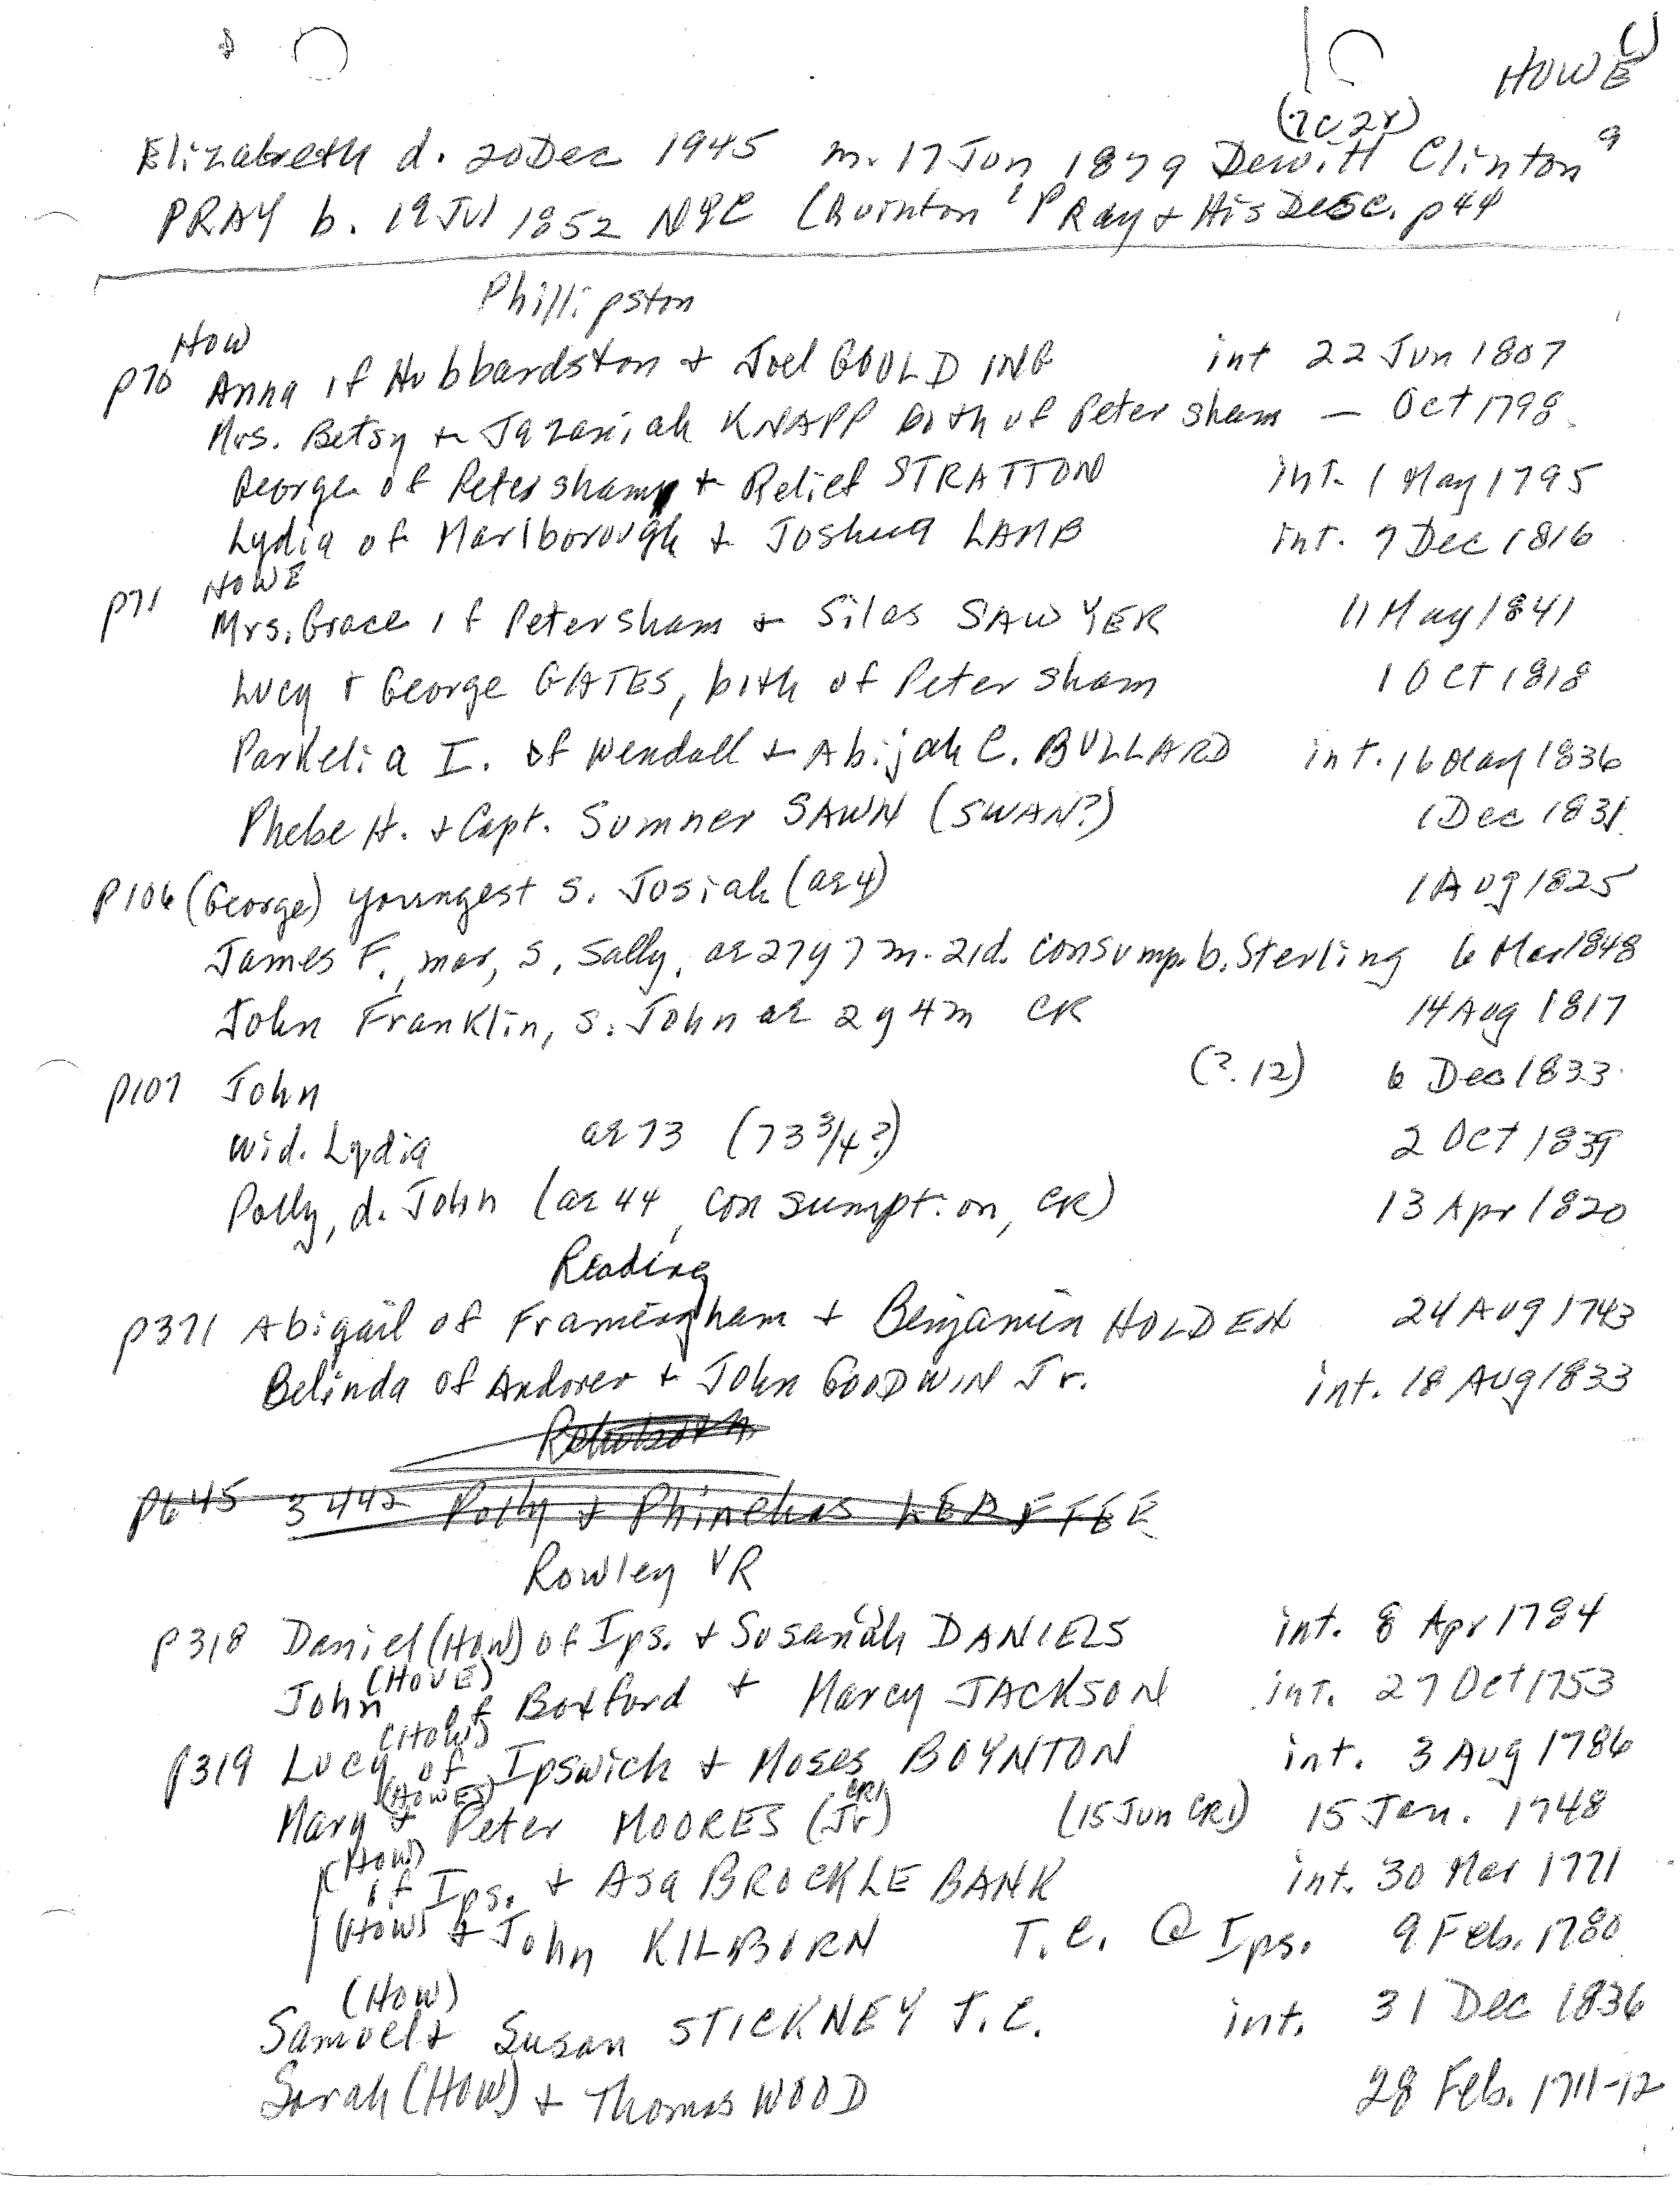 HOWE
Elizabeth d. 20 Dec 1945 m. 17 Jun 1879 Dewitt Clinton
PRAY b. 19 Jul 1852 NYC (Quinton PRay + His Desc. p44
Phillipston
HOW
p70 Anna of Hubbardston + Joel GOOLDING int 22 Jun 1807
Mrs. Betsy + Jazaniah KNAPP both of Petersham — Oct 1798
George of Petersham + Relief STRATTON int. 1 May 1795
Lydia of Marlborough + Joshua LAMB int. 7 Dec 1816
HOWE
p71 Mrs. Grace of Petersham + Silas SAWYER 11 May 1841
Lucy + George GATES, both of Petersham 1 Oct 1818
Parkelia I. of Wendall + Abijah C. BULLARD int. 16 May 1836
Phebe H. + Capt. Sumner SAWN (SWAN?) 1 Dec 1831
p106 (George) youngest s. Josiah (ae 4) 1 Aug 1825
James F., mar, s. Sally, ae 27y 7m. 21d. consump. b. Sterling 6 Mar 1848
John Franklin, s. John ae 2y 4m CR 14 Aug 1817
p107 John (?.12) 6 Dec 1833
Wid. Lydia ae 73 (73 3/4?) 2 Oct 1839
Polly, d. John (ae 44, consumption, CR) 13 Apr 1820
Reading
p371 Abigail of Framingham + Benjamin HOLDEN 24 Aug 1743
Belinda of Andover + John GOODWIN Jr. int. 18 Aug 1833
p645 3442 Polly + Phinehas
Rowley VR
p318 Daniel (HOW) of Ips. + Susanah DANIELS int. 8 Apr 1784
John (HOVE) of Boxford + Marcy JACKSON int. 27 Oct 1753
p319 Lucy (HOW) of Ipswich + Moses BOYNTON int. 3 Aug 1786
Mary (HOWES) + Peter MOORES (Jr CR1) (15 Jun CR1) 15 Jan. 1748
(HOW) of Ips. + Asa BROCKLEBANK int. 30 Mar 1771
(HOW) + John KILBORN T.C. @ Ips. 9 Feb. 1780
(HOW)
Samuel + Susan STICKNEY T.C. int. 31 Dec 1836
Sarah (HOW) + Thomas WOOD 28 Feb. 1711-12